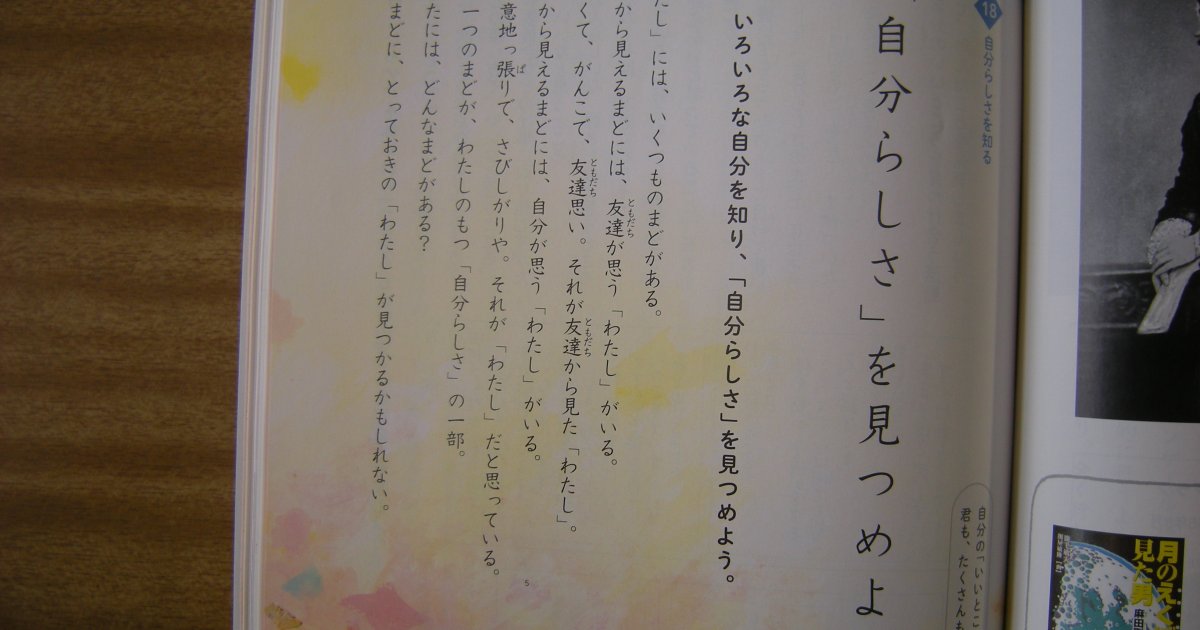 18 自分らしさを知る
「自分らしさ」を見つめよ
いろいろな自分を知り、「自分らしさ」を見つめよう。
たし」には、いくつものまどがある。
から見えるまどには、友達が思う「わたし」がいる。
くて、がんこで、友達思い。それが友達から見た「わたし」。
から見えるまどには、自分が思う「わたし」がいる。
意地っ張りで、さびしがりや。それが「わたし」だと思っている。
一つのまどが、わたしのもつ「自分らしさ」の一部。
たには、どんなまどがある?
まどに、とっておきの「わたし」が見つかるかもしれない。
5
自分の「いいとこ
君も、たくさんも
月のえく
見た男
麻田